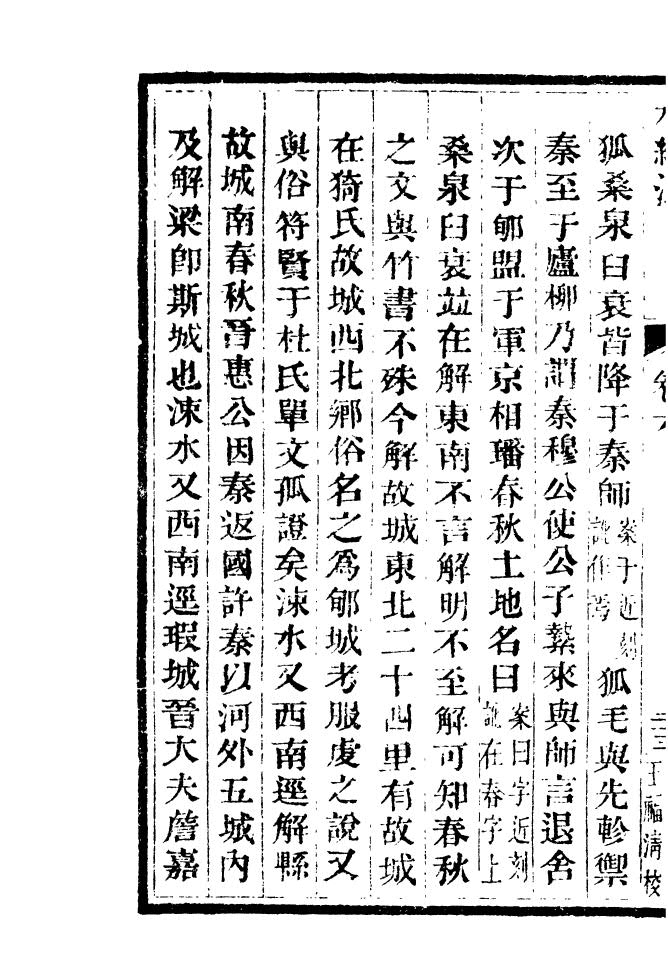 水經注
卷六
三三王福清校
狐桑泉臼衰皆降于秦師案于近刻訛作焉狐毛與先軫禦
秦至于廬柳乃謂秦穆公使公子縶來與師言退舍
次于郇盟于軍京相璠春秋土地名曰案曰字近刻訛在春字上
桑泉臼衰竝在解東南不言解明不至解可知春秋
之文與竹書不殊今解故城東北二十四里有故城
在猗氏故城西北鄉俗名之爲郇城考服虔之說又
與俗符賢于杜氏單文孤證矣涑水又西南逕解縣
故城南春秋晉惠公因秦返國許秦以河外五城內
及解梁卽斯城也涑水又西南逕瑕城晉大夫詹嘉